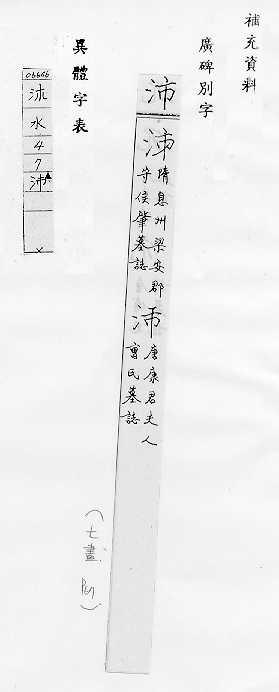 補充資料
廣碑別字
沛
沛 隋息州梁安郡
守侯肇墓誌
沛 唐康君夫人
曹氏墓誌
異體字表
06666
沭
水
4
7
沛
x
(七畫